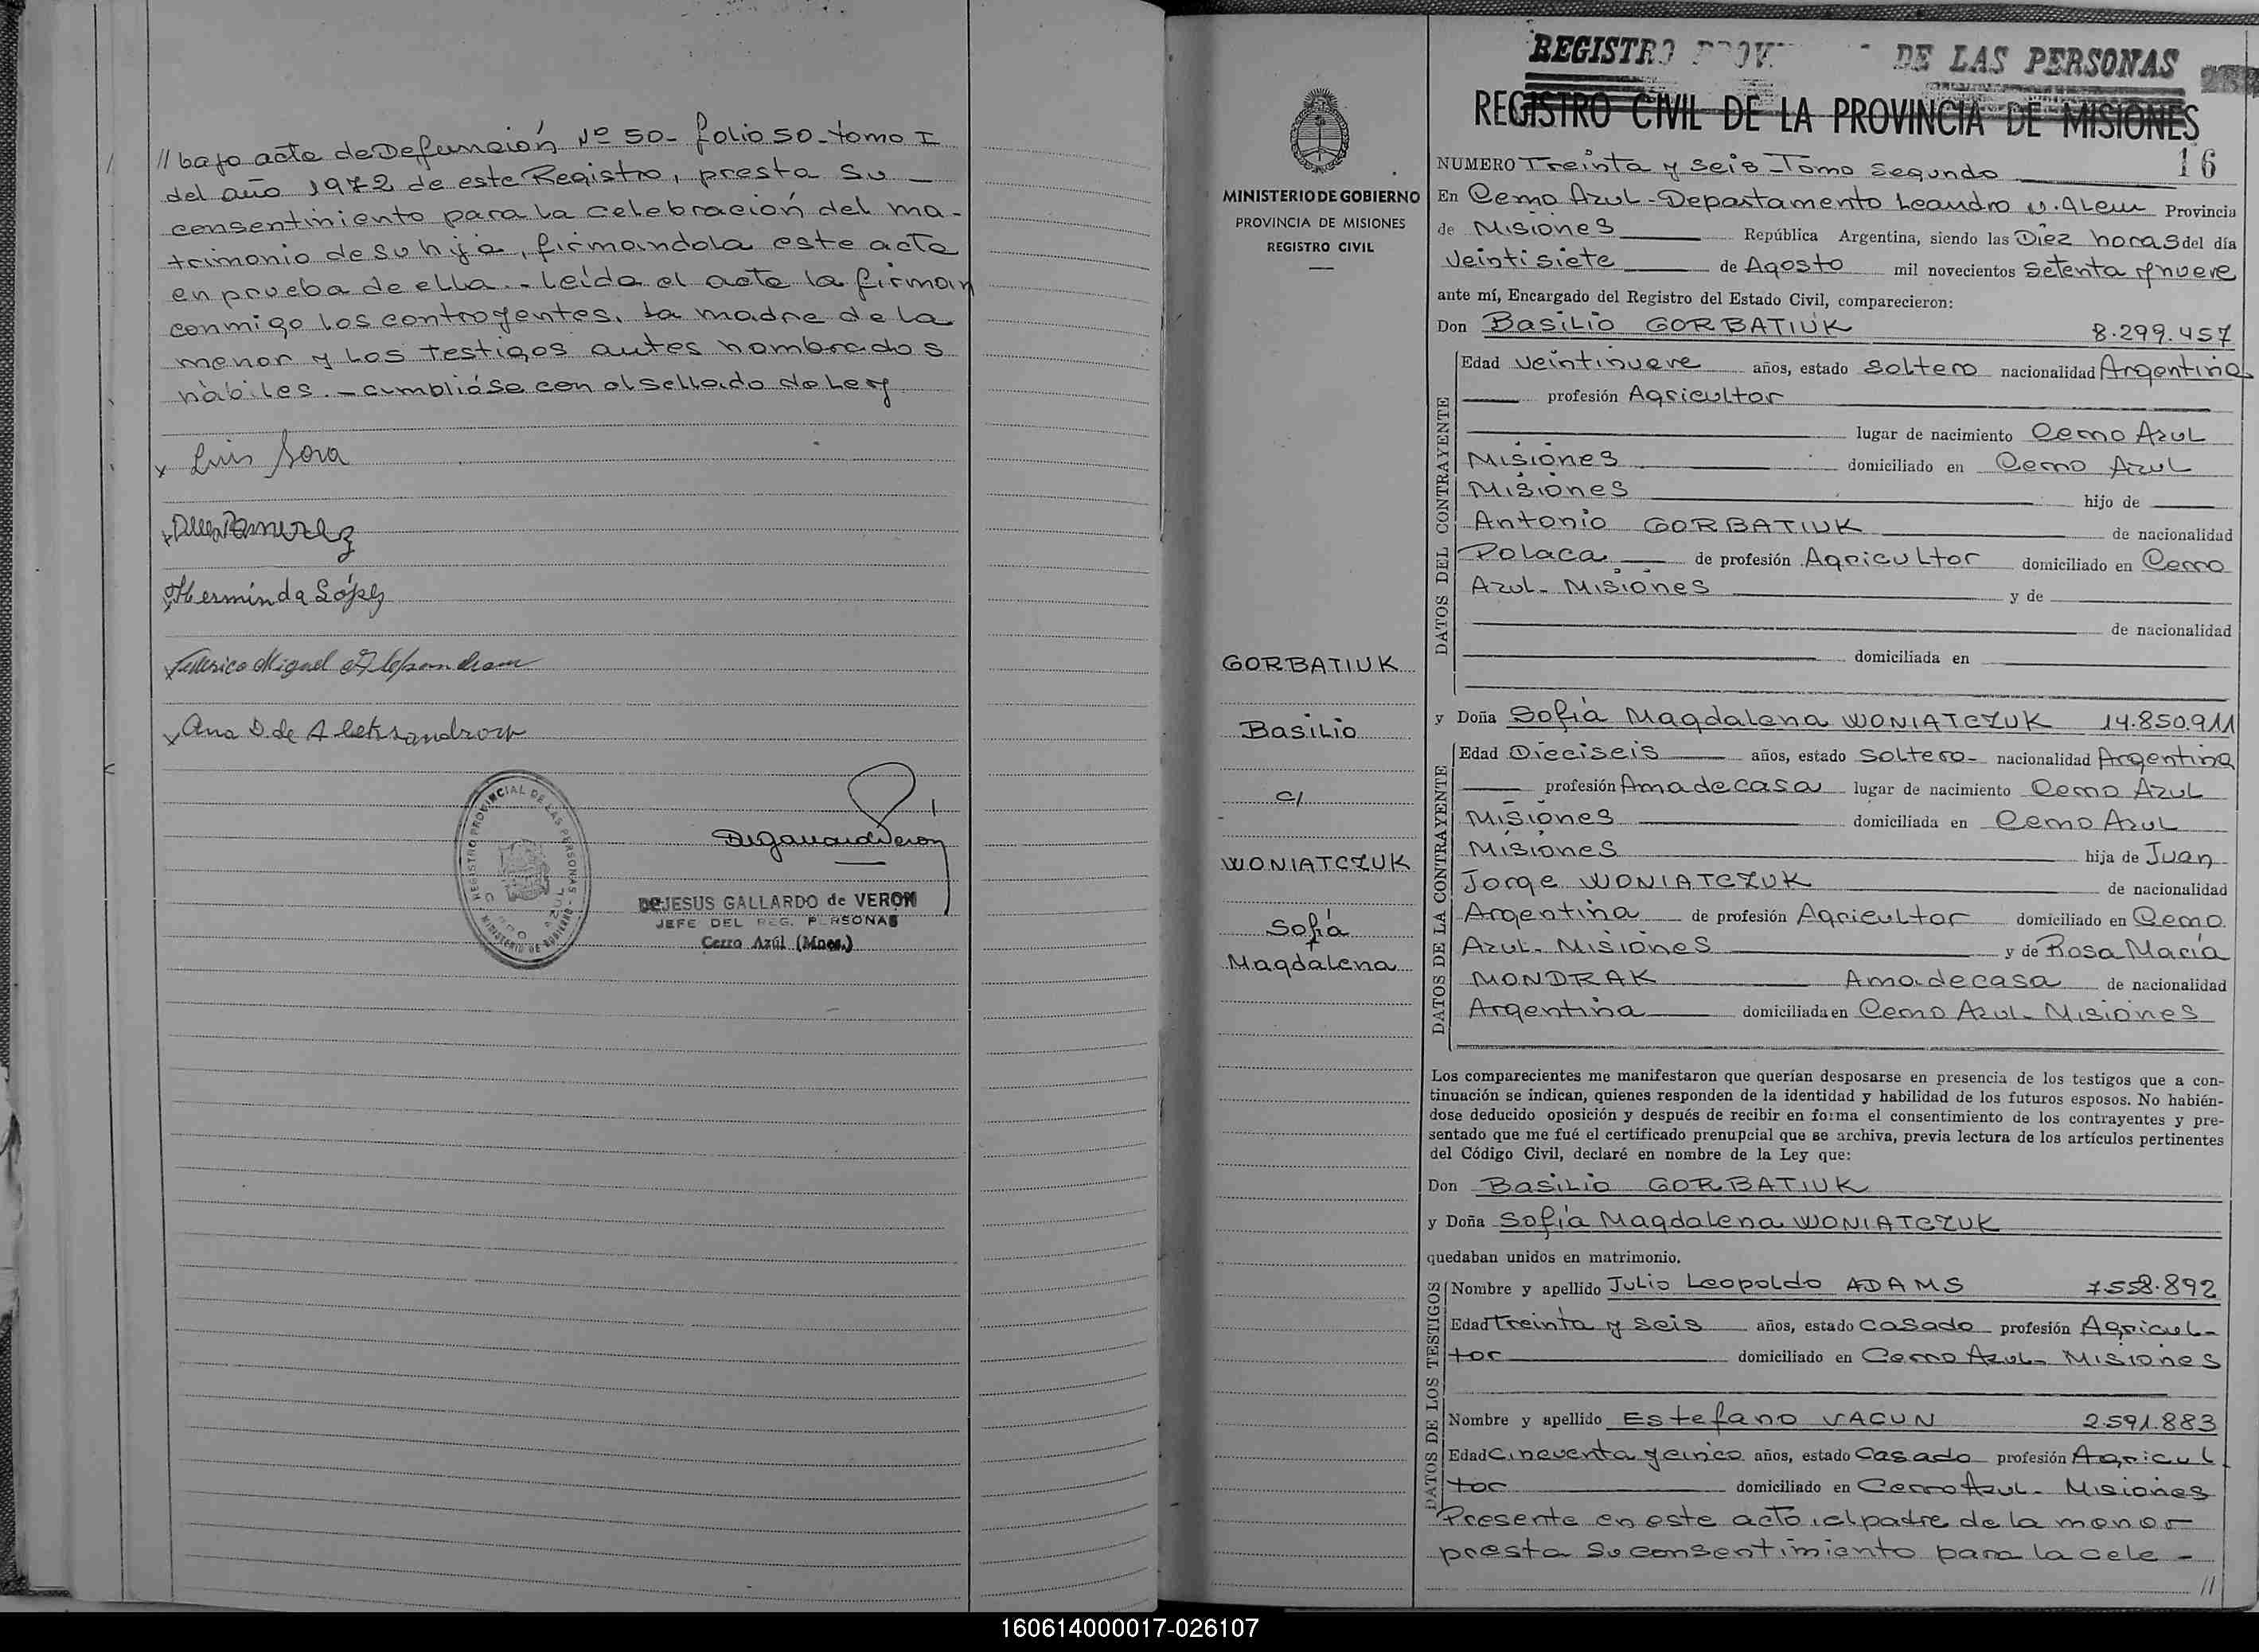 // bajo acta de Defunción Nº 50- folio 50- tomo I
del año 1972 de este Registro, presta su -
consentimiento para la celebración del ma-
trimonio de su hija, firmandola este acta
en prueba de ella.- leída el acta la firman
conmigo los contrayentes, la madre de la
menor y los testigos antes nombrados
hàbiles.- cumplióse con el sellado de Ley
x Luis Sora
Ramirez
Herminda López
Federico Miguel
x Ana D. de Aleksandrow
REGISTRO PROVINCIAL DE LAS PERSONAS
DEJESUS GALLARDO de VERON
JEFE DEL REG. PERSONAS
Cerro Azúl (Mnes.)
MINISTERIO DE GOBIERNO
PROVINCIA DE MISIONES
REGISTRO CIVIL
GORBATIUK
Basilio
c/
WONIATCZUK
Sofía
Magdalena
REGISTRO PROV DE LAS PERSONAS
REGISTRO CIVIL DE LA PROVINCIA DE MISIONES
16
NUMERO Treinta y seis - Tomo Segundo
En Cerro Azul - Departamento Leandro N. Alem Provincia
de Misiones República Argentina, siendo las Diez horas del día
Veintisiete de Agosto mil novecientos setenta y nueve
ante mí, Encargado del Registro del Estado Civil, comparecieron:
Don Basilio GORBATIUK 8.299.457
DATOS DEL CONTRAYENTE
Edad veintinueve años, estado soltero nacionalidad Argentina
profesión Agricultor
lugar de nacimiento Cerro Azul
Misiones domiciliado en Cerro Azul
Misiones hijo de
Antonio GORBATIUK de nacionalidad
Polaca de profesión Agricultor domiciliado en Cerro
Azul- Misiones y de
de nacionalidad
domiciliada en
y Doña Sofía Magdalena WONIATCZUK 14.850.911
DATOS DE LA CONTRAYENTE
Edad Dieciseis años, estado soltero- nacionalidad Argentina
profesión Ama de casa lugar de nacimiento Cerro Azul
Misiones domiciliada en Cerro Azul
Misiones hija de Juan
Jorge WONIATCZUK de nacionalidad
Argentina de profesión Agricultor domiciliado en Cerro
Azul- Misiones y de Rosa María
MONDRAK Ama de casa de nacionalidad
Argentina domiciliada en Cerro Azul- Misiones
Los comparecientes me manifestaron que querían desposarse en presencia de los testigos que a con-
tinuación se indican, quienes responden de la identidad y habilidad de los futuros esposos. No habién-
dose deducido oposición y después de recibir en forma el consentimiento de los contrayentes y pre-
sentado que me fué el certificado prenupcial que se archiva, previa lectura de los artículos pertinentes
del Código Civil, declaré en nombre de la Ley que:
Don Basilio GORBATIUK
y Doña Sofía Magdalena WONIATCZUK
quedaban unidos en matrimonio.
DATOS DE LOS TESTIGOS
Nombre y apellido Julio Leopoldo ADAMS 7.558.892
Edad treinta y seis años, estado casado profesión Agricul-
tor domiciliado en Cerro Azul- Misiones
Nombre y apellido Estefano VACUN 2.591.883
Edad cincuenta y cinco años, estado casado profesión Agricul
tor domiciliado en Cerro Azul- Misiones
Presente en este acto, el padre de la menor
presta su consentimiento para la cele -
//
160614000017-026107